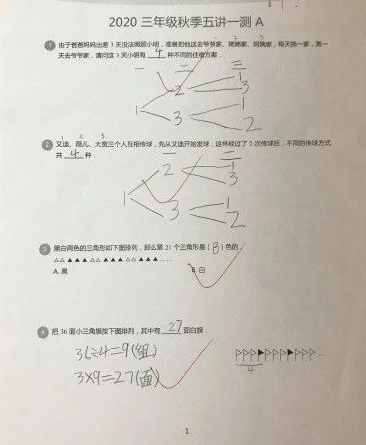 2020 三年级秋季五讲一测 A
1 由于爸爸妈妈出差 3 天没法照顾小明，准备把他送去爷爷家、姥姥家、阿姨家，每天换一家，第一
天去爷爷家，请问这 3 天小明有 4 种不同的住宿方案．
一 二 三
1 2 1
3
3 1
2
2 艾迪、薇儿、大宽三个人互相传球，先从艾迪开始发球，这样经过了 2 次传球后，不同的传球方式
共 4 种．
一 二
1 2 1
3
3 1
2
3 黑白两色的三角形如下图排列，那么第 21 个三角形是（B）色的．
△△▲▲▲△△▲▲▲△△▲▲▲……
A. 黑 B. 白
4 把 36 面小三角旗按下图排列，其中有 27 面白旗．
36÷4=9(组)
3×9=27(面)
4
1